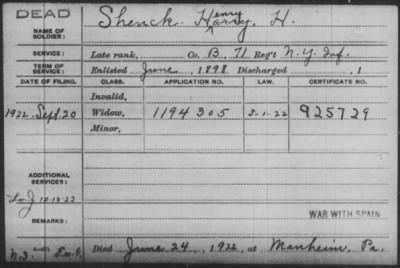 DEAD
NAME OF SOLDIER: Shenck Henry Harry, H.
SERVICE: Late rank, Co. B, 71 Reg't N.Y. Inf.
TERM OF SERVICE: Enlisted June, 1898 Discharged , 1
DATE OF FILING. CLASS. APPLICATION NO. LAW. CERTIFICATE NO.
Invalid,
1922, Sept. 20 Widow, 1194305 5-1-22 925729
Minor,
ADDITIONAL SERVICES:
WAR WITH SPAIN
REMARKS:
Died June 24, 1922, at Manheim, Pa.